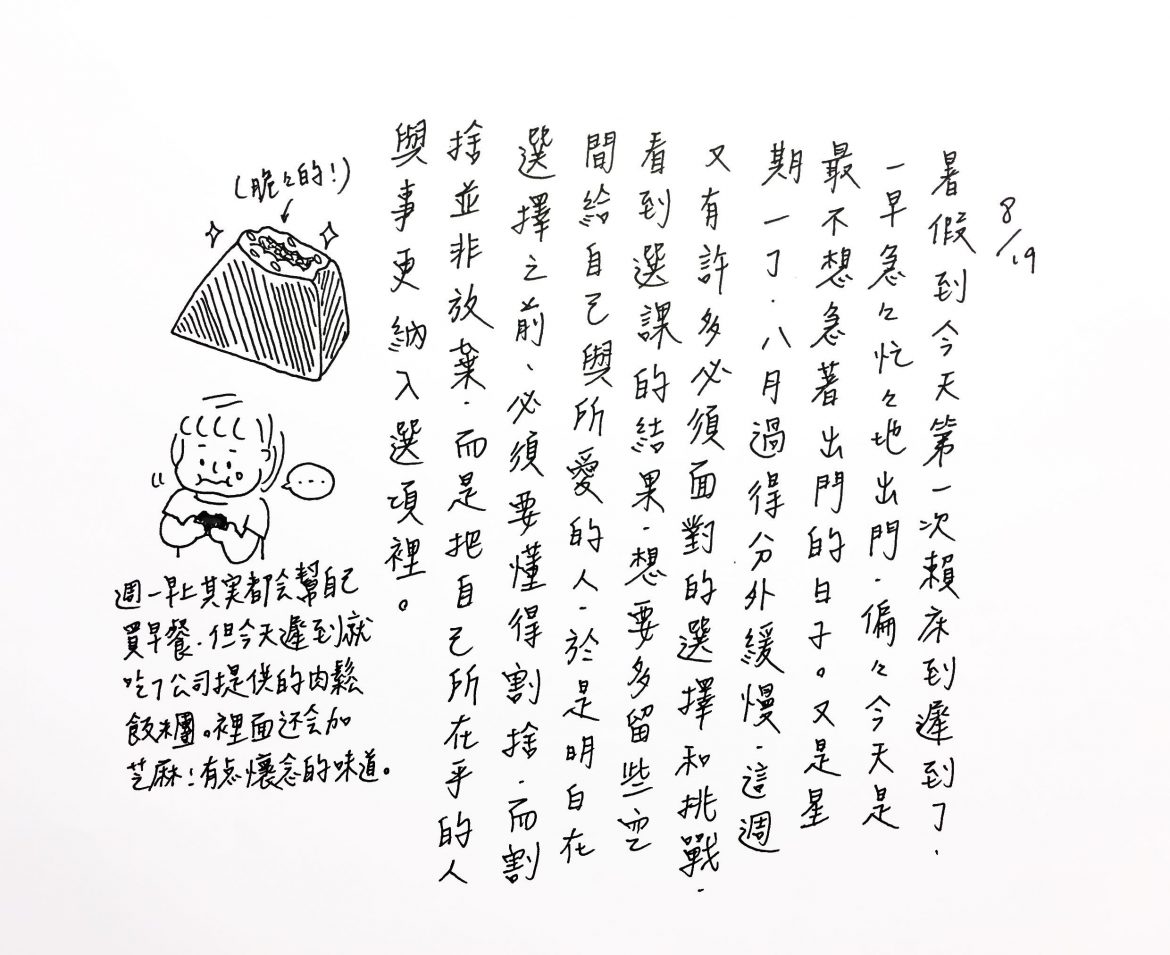 8/19
暑假到今天第一次賴床到遲到了.
一早急々忙々地出門.偏々今天是
最不想急著出門的日子。又是星
期一了.八月過得分外緩慢.這週
又有許多必須面對的選擇和挑戰.
看到選課的結果.想要多留些空
間給自己與所愛的人.於是明白在
選擇之前、必須要懂得割捨.而割
捨並非放棄.而是把自己所在乎的人
與事更納入選項裡。
(脆々的!)
...
週一早上其实都会幫自己
買早餐.但今天遲到就
吃了公司提供的肉鬆
飯糰。裡面还会加
芝麻!有点懷念的味道。